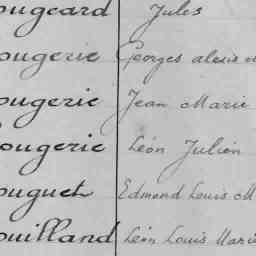 ougeard Jules
ougerie Georges alexis
ougerie Jean Marie
ougerie Léon Julien
ouguet Edmond Louis M
ouilland Léon Louis Marie